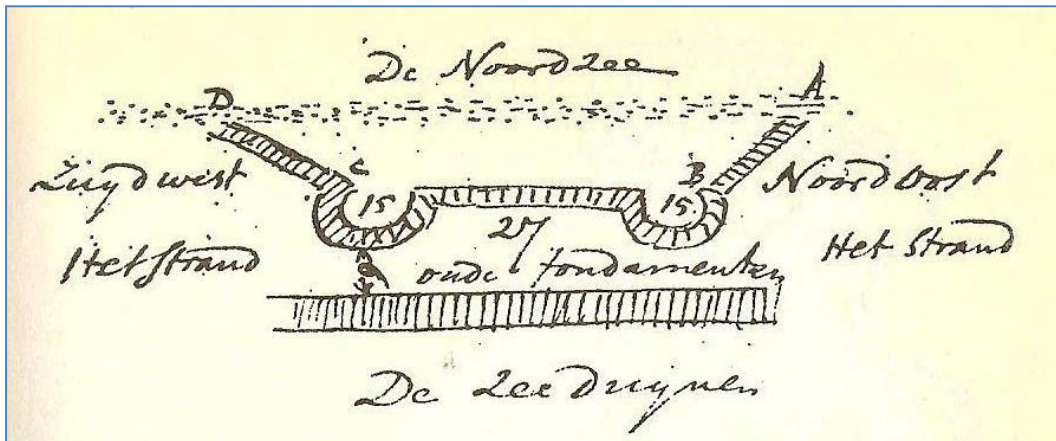 De Noordzee
D A
C B
Zuydwest Noordoost
15 15
27
Het Strand oude fondamenten Het Strand
De Zee Duynen